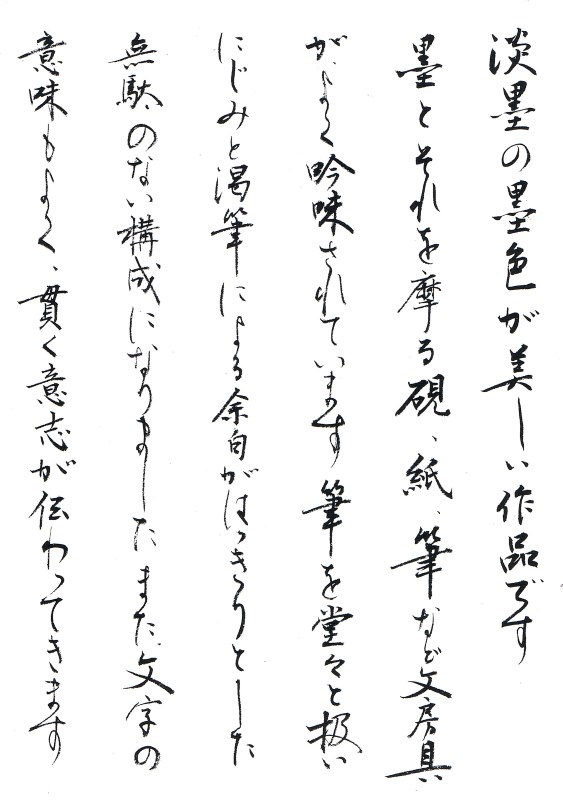 淡墨の墨色が美しい作品です
墨とそれを摩る硯、紙、筆など文房具
がよく吟味されています 筆を堂々と扱い
にじみと渇筆による余白がはっきりとした
無駄のない構成になりました また、文字の
意味もよく、貫く意志が伝わってきます